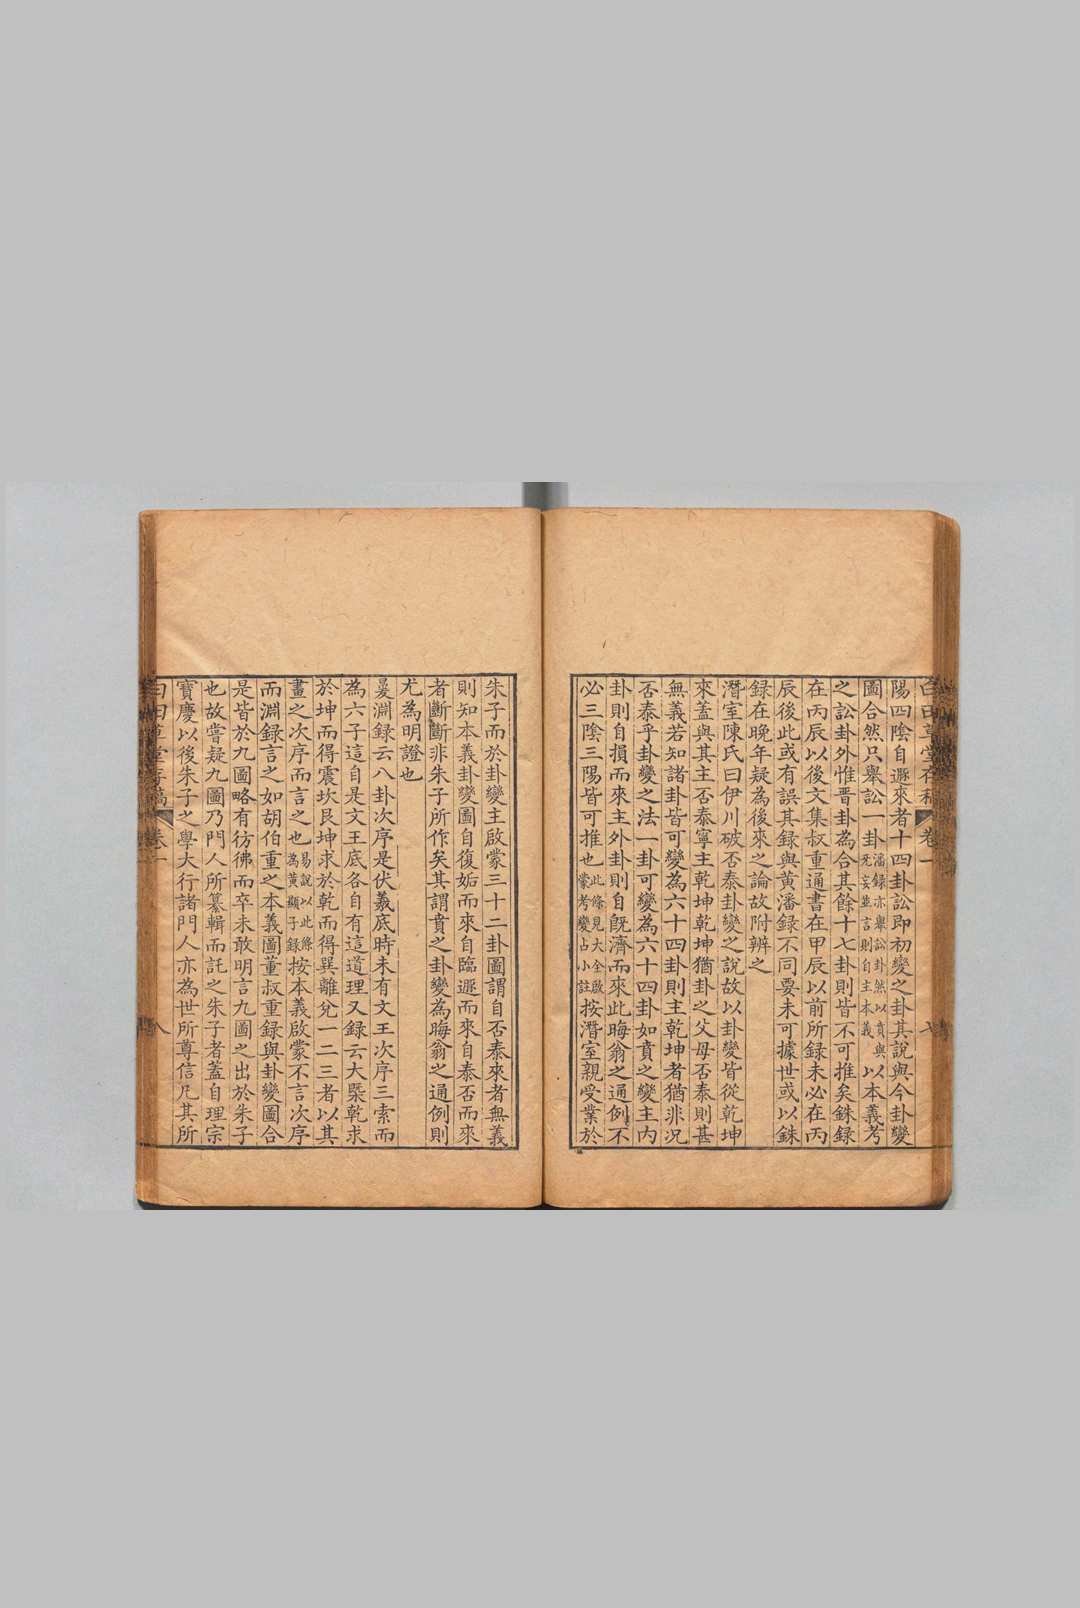 陽四陰自遯來者十四卦訟即初變之卦其說與今卦變
圖合然只舉訟一卦潘録亦舉訟卦然以賁與无妄並言則自主本義以本義考
之訟卦外惟晋卦為合其餘十七卦則皆不可推矣銖録
在丙辰以後文集叔重通書在甲辰以前所録未必在丙
辰後此或有誤其録與黃潘録不同要未可據世或以銖
録在晚年疑為後來之論故附辨之
潛室陳氏曰伊川破否泰卦變之說故以卦變皆從乾坤
來蓋與其主否泰寧主乾坤乾坤猶卦之父母否泰則甚
無義若知諸卦皆可變為六十四卦則主乾坤者猶非況
否泰乎卦變之法一卦可變為六十四卦如賁之變主內
卦則自損而來主外卦則自旣濟而來此晦翁之通例不
必三陰三陽皆可推也此條見大全啟蒙考變占小註按潛室親受業於
朱子而於卦變主啟蒙三十二卦圖謂自否泰來者無義
則知本義卦變圖自復姤而來自臨遯而來自泰否而來
者斷斷非朱子所作矣其謂賁之卦變為晦翁之通例則
尤為明證也
㬊淵録云八卦次序是伏羲底時未有文王次序三索而
為六子這自是文王底各自有這道理又録云大槩乾求
於坤而得震坎艮坤求於乾而得巽離兌一二三者以其
畫之次序而言之也易說以此條為黃顯子録按本義啟蒙不言次序
而淵録言之如胡伯重之本義圖董叔重録與卦變圖合
是皆於九圖略有彷彿而卒未敢明言九圖之出於朱子
也故嘗疑九圖乃門人所纂輯而託之朱子者蓋自理宗
寶慶以後朱子之學大行諸門人亦為世所尊信凡其所
白田草堂存稿 卷一 七
白田草堂存稿 卷一 八